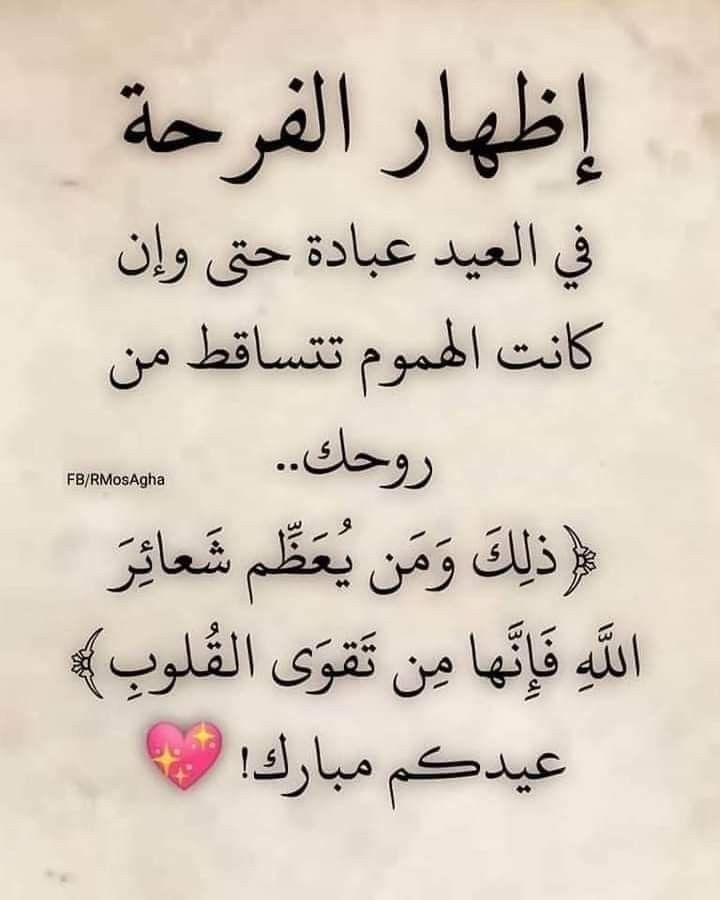 إظهار الفرحة
في العيد عبادة حتى وإن
كانت الهموم تتساقط من
روحك..
FB/RMosAgha
﴿ذلِكَ وَمَن يُعَظِّم شَعائِرَ
اللَّهِ فَإِنَّها مِن تَقوَى القُلوبِ﴾
عيدكم مبارك! 💖